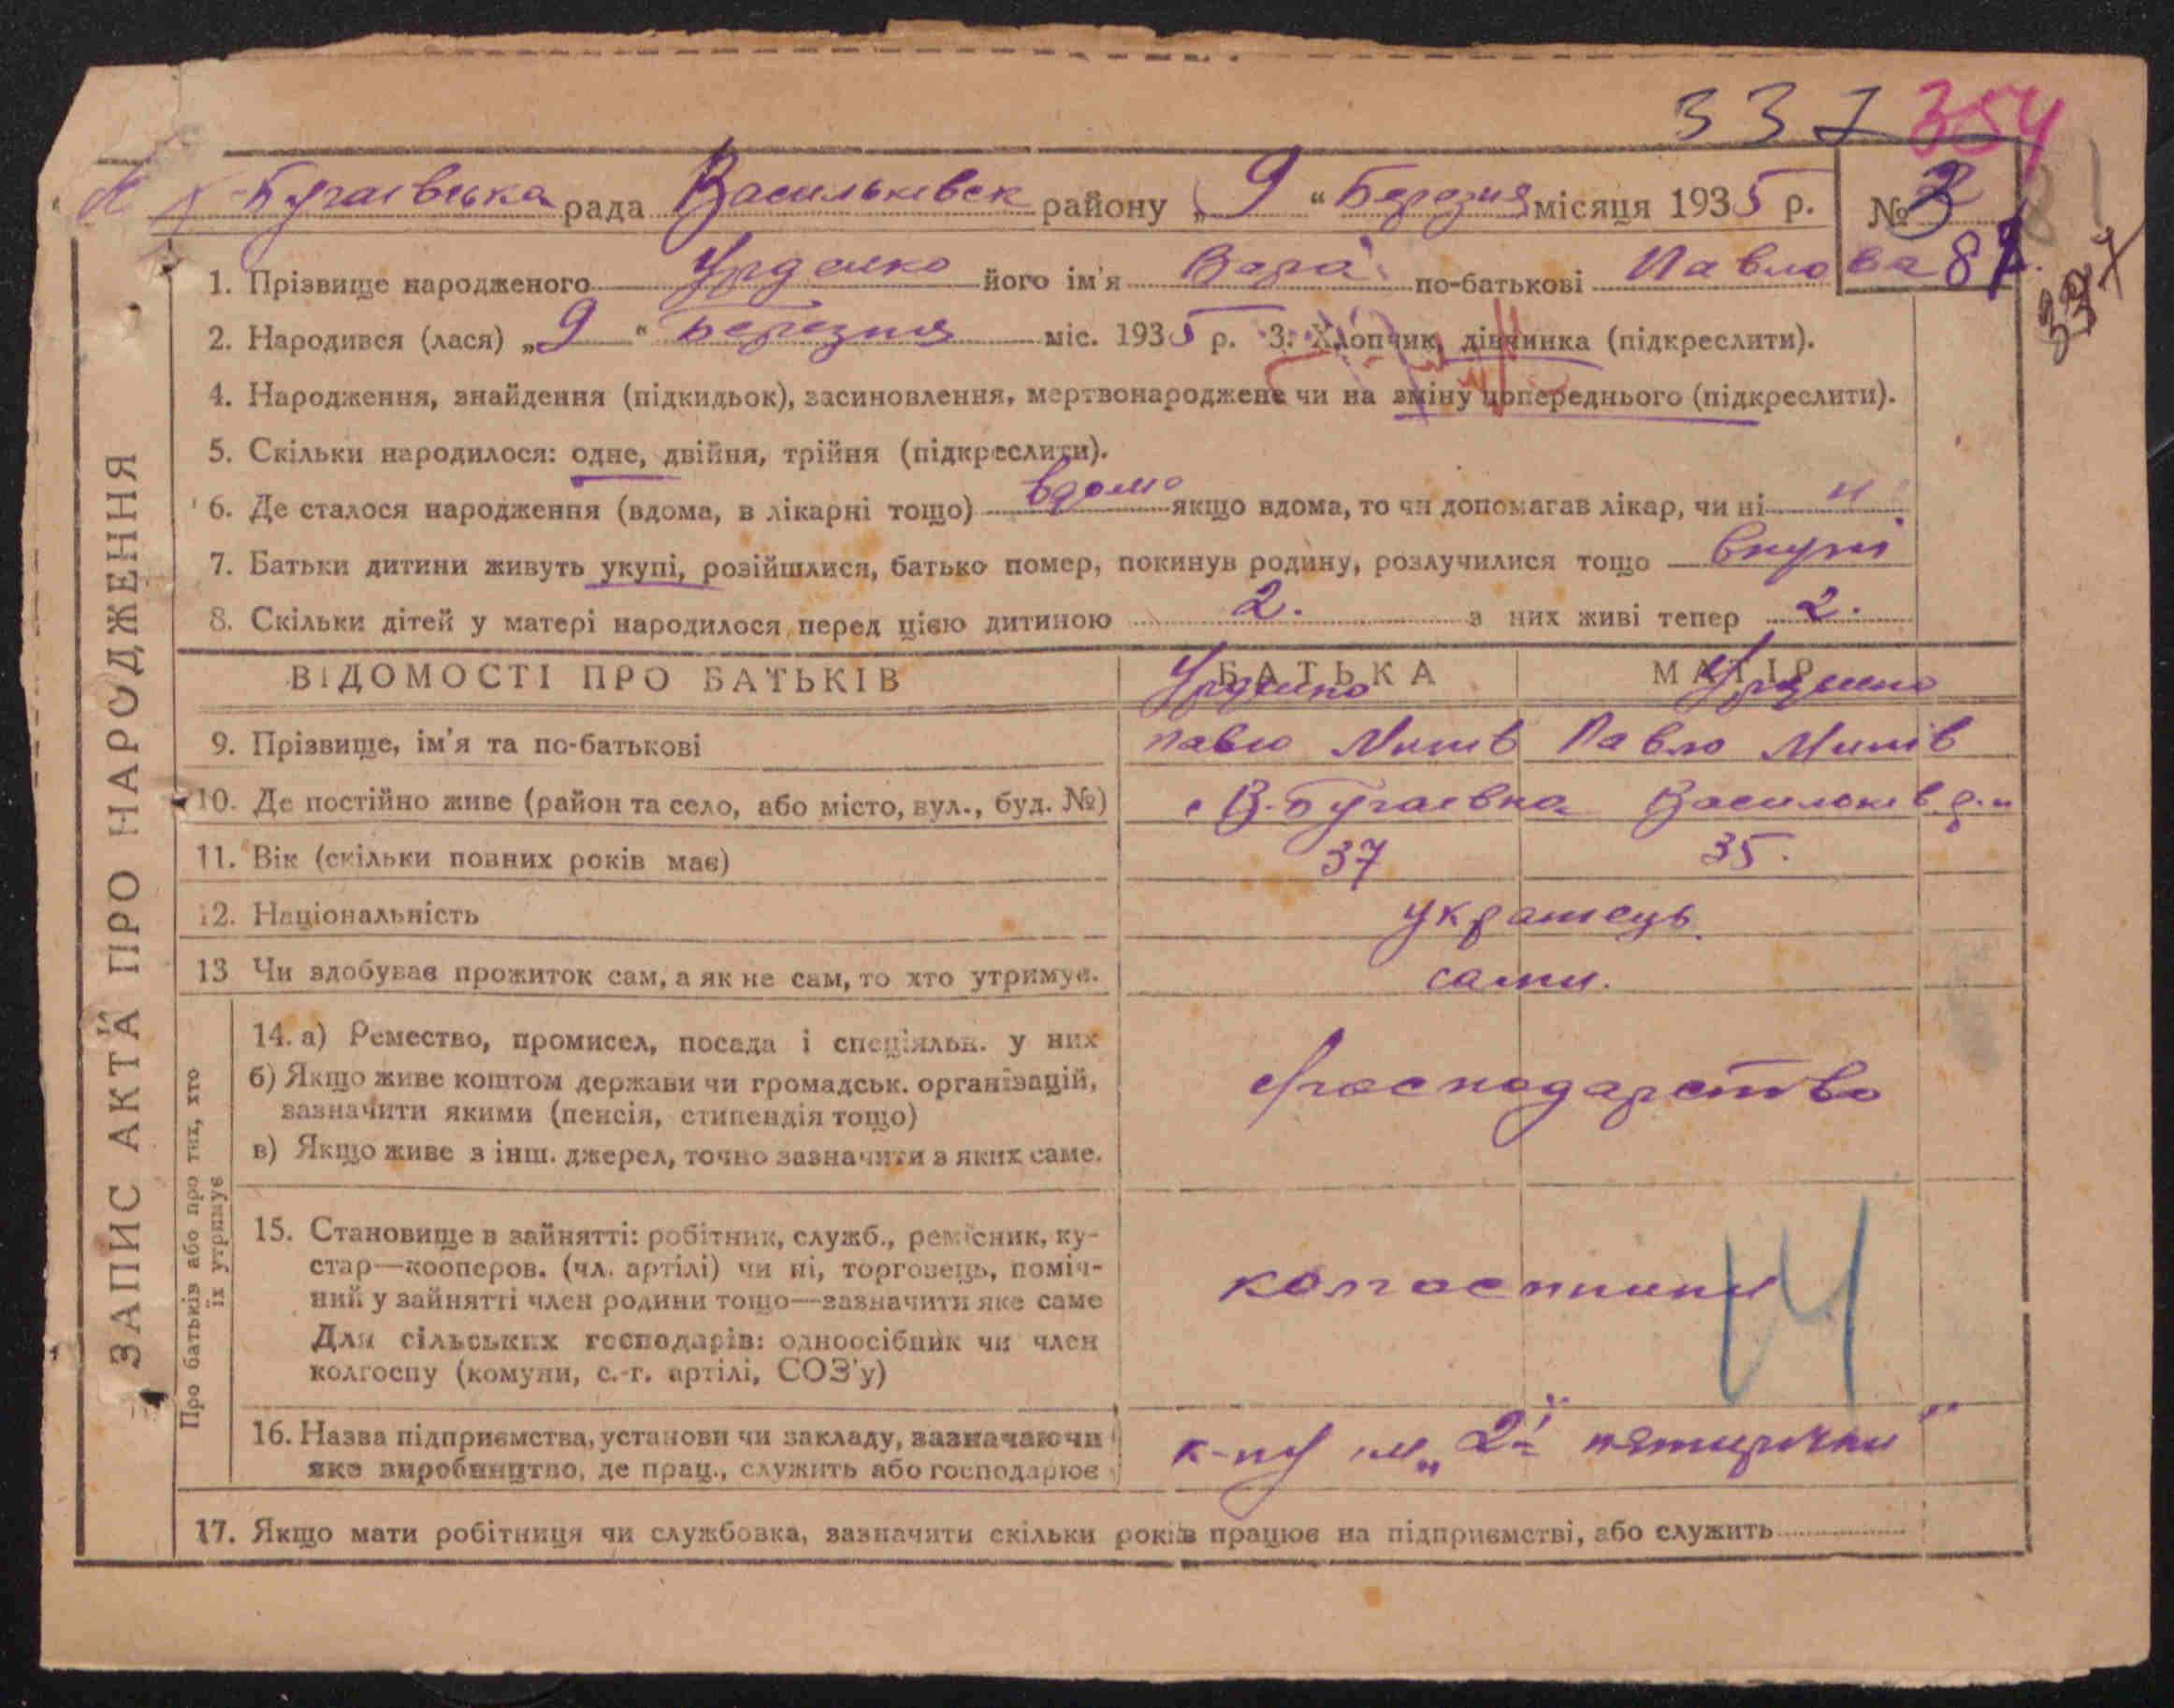 337 354
-Бугаївська рада Васильківськ району „9“ Березня місяця 1935 р. № 3
87
337
1. Прізвище народженого його ім'я Вара по-батькові Павлова
2. Народився (лася) „9“ Березня міс. 1935 р. 3. Хлопчик, дівчинка (підкреслити).
4. Народження, знайдення (підкидьок), засиновлення, мертвонароджене чи на зміну попереднього (підкреслити).
5. Скільки народилося: одне, двійня, трійня (підкреслити).
6. Де сталося народження (вдома, в лікарні тощо) вдома якщо вдома, то чи допомагав лікар, чи ні
7. Батьки дитини живуть укупі, розійшлися, батько помер, покинув родину, розлучилися тощо вкупі
8. Скільки дітей у матері народилося перед цією дитиною 2. з них живі тепер 2.
ВІДОМОСТІ ПРО БАТЬКІВ БАТЬКА МАТІР
9. Прізвище, ім'я та по-батькові Павло Павло
10. Де постійно живе (район та село, або місто, вул., буд. №) с В-Бугаевка Васильків р-н
11. Вік (скільки повних років має) 37 35.
12. Національність українець
13 Чи здобуває прожиток сам, а як не сам, то хто утримує. сами.
14. а) Ремество, промисел, посада і спеціяльн. у них
б) Якщо живе коштом держави чи громадськ. організацій,
зазначити якими (пенсія, стипендія тощо)
в) Якщо живе з інш. джерел, точно зазначити з яких саме.
господарство
15. Становище в зайнятті: робітник, служб., ремісник, ку-
стар—кооперов. (чл. артілі) чи ні, торговець, поміч-
ний у зайнятті член родини тощо—зазначити яке саме
Для сільських господарів: одноосібник чи член
колгоспу (комуни, с.-г. артілі, СОЗ'у)
колгоспники
14
16. Назва підприємства, установи чи закладу, зазначаючи
яке виробництво, де прац., служить або господарює
к-пу ім „2ї пятирічки“
17. Якщо мати робітниця чи службовка, зазначити скільки років працює на підприємстві, або служить
ЗАПИС АКТА ПРО НАРОДЖЕННЯ
Про батьків або про тих, хто
їх утримує